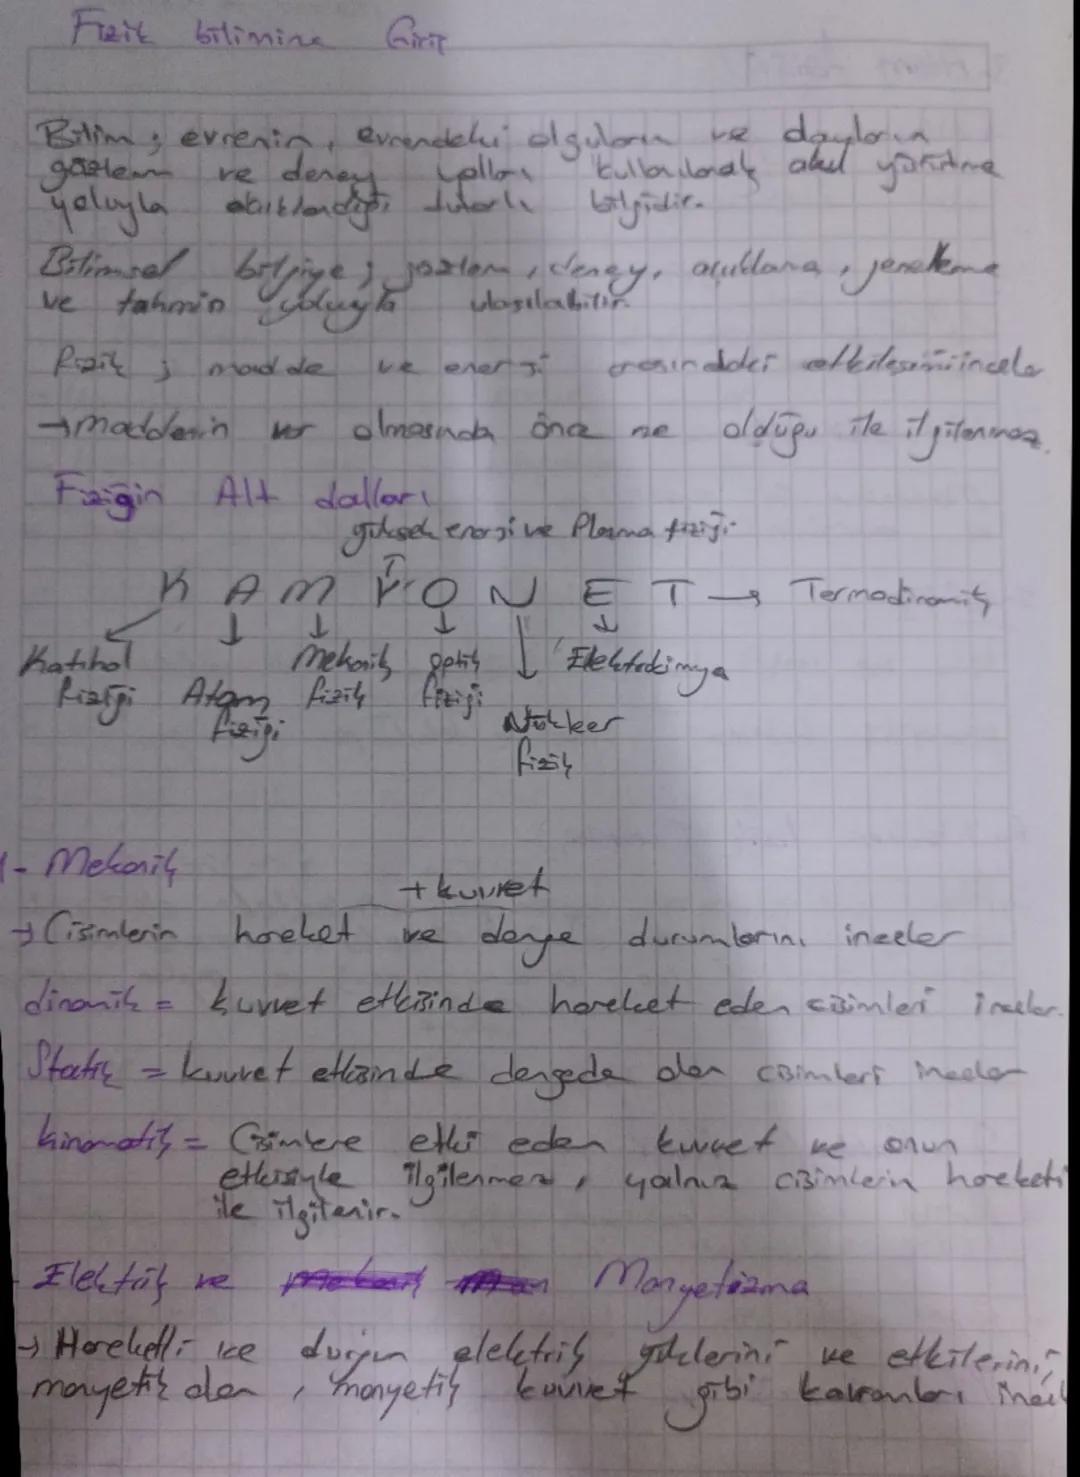 Fizik bilimine Giriş
Bilim; evrenin, evrendeki olguların ve olayların
gözlem ve deney yolları kullanılarak akıl yürütme
yoluyla açıklandığı tutarlı bilgidir.
Bilimsel bilgiye; gözlem, deney, açıklama, genelleme
ve tahmin yoluyla ulaşılabilir.
Fizik; madde ve enerji arasındaki etkileşimi inceler
→ maddenin var olmasında önce ne olduğu ile ilgilenmez.
Fiziğin Alt dalları
yüksek enerji ve Plazma fiziği
K A M Y O N E T → Termodinamik
Katıhal Mekanik optik Elektrokimya
fiziği Atom fizik fiziği
fiziği Nükleer
fizik
1- Mekanik
+ kuvvet
→ Cisimlerin hareket ve denge durumlarını inceler
dinamik = kuvvet etkisinde hareket eden cisimleri inceler.
Statik = kuvvet etkisinde dengede olan cisimleri inceler
kinematik = Cisimlere etki eden kuvvet ve onun
etkisiyle ilgilenmez, yalnız cisimlerin hareketi
ile ilgilenir.
- Elektrik ve Manyetizma
→ Hareketli ve durgun elektrik yüklerini ve etkilerini,
manyetik alan, manyetik kuvvet gibi kavramları